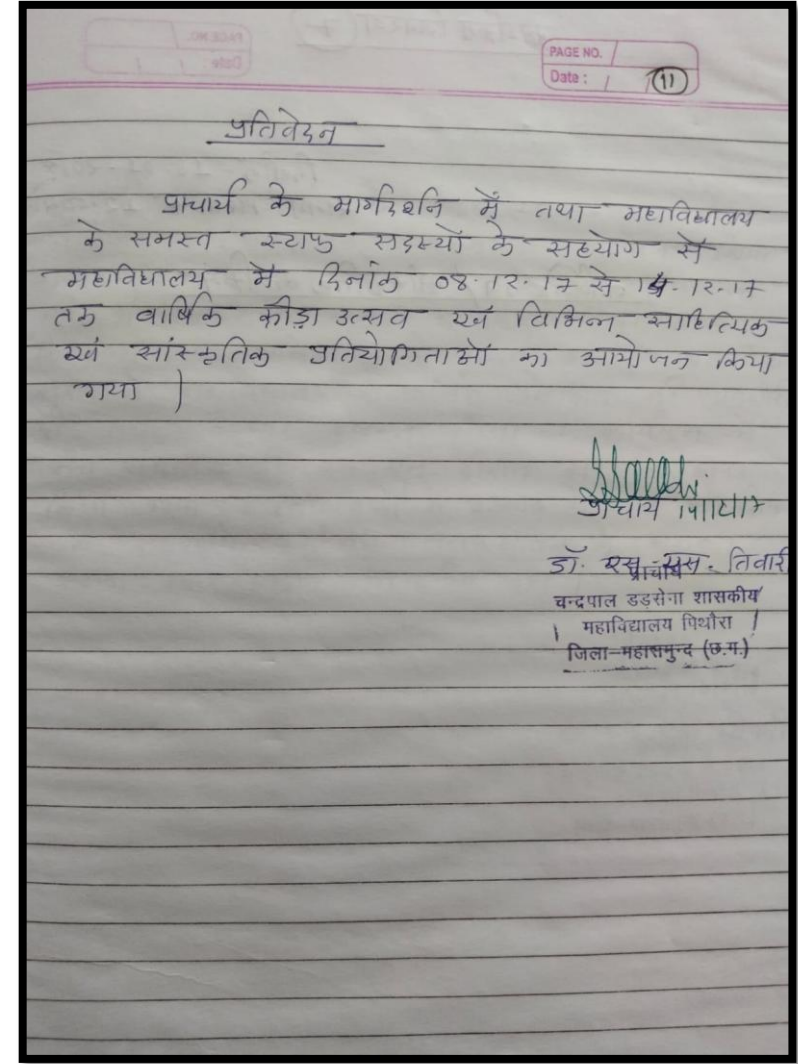 PAGE NO.
Date : / / (11)
प्रतिवेदन
प्राचार्य के मार्गदर्शन में तथा महाविद्यालय
के समस्त स्टाफ सदस्यों के सहयोग से
महाविद्यालय में दिनांक 08.12.17 से 14.12.17
तक वार्षिक क्रीड़ा उत्सव एवं विभिन्न साहित्यिक
एवं सांस्कृतिक प्रतियोगिताओं का आयोजन किया
गया |
प्राचार्य 14/12/17
डॉ. एस. एस. तिवारी
प्राचार्य
चन्द्रपाल डड़सेना शासकीय
महाविद्यालय पिथौरा
जिला-महासमुन्द (छ.ग.)